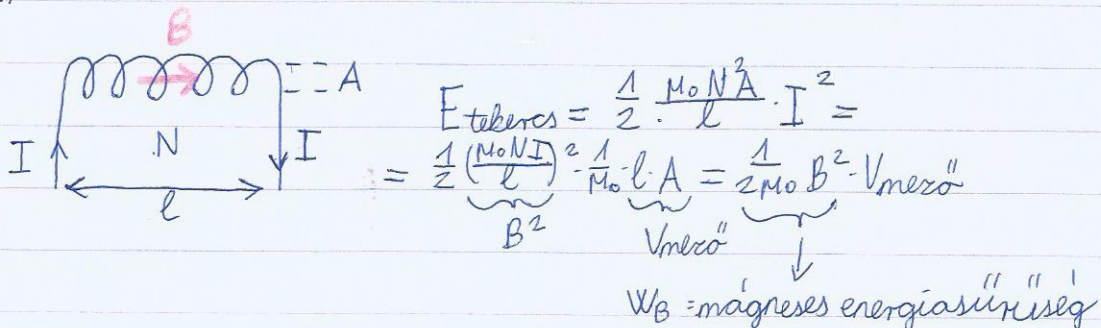 B
A
I
N
I
l
E tekercs = 1/2 · μ₀N²A/l · I² =
= 1/2 (μ₀NI/l)² · 1/μ₀ · l · A = 1/2μ₀ B² · Vmező
B² Vmező
W_B = mágneses energiasűrűség